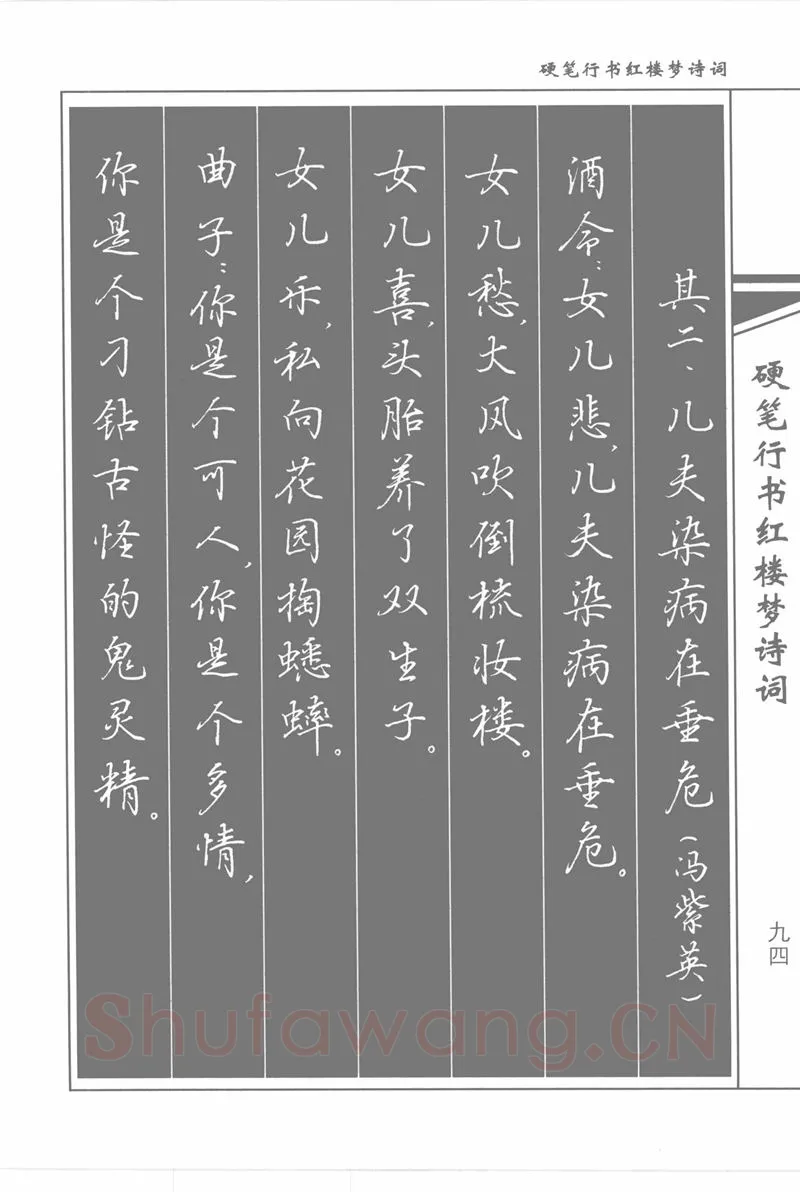 硬笔行书红楼梦诗词
其二、儿夫染病在垂危(冯紫英)
酒令:女儿悲,儿夫染病在垂危。
女儿愁,大风吹倒梳妆楼。
女儿喜,头胎养了双生子。
女儿乐,私向花园掏蟋蟀。
曲子:你是个可人,你是个多情,
你是个刁钻古怪的鬼灵精。
硬笔行书红楼梦诗词
九四
Shufawang.CN